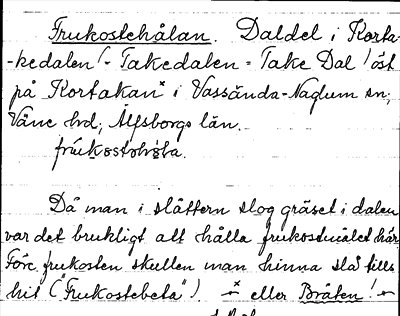 Frukostehålan. Daldel i Korta-
-kedalen /- Takedalen = Take Dal / öst
på Kortakan× i Vassända-Naglum sn,
Väne hd, Älfsborgs län.
Då man i slåttern slog gräset i dalen
var det brukligt att hålla frukostmålet här
Före frukosten skullen man hinna slå tills
hit ("Frukostebeta") × eller Bråten!